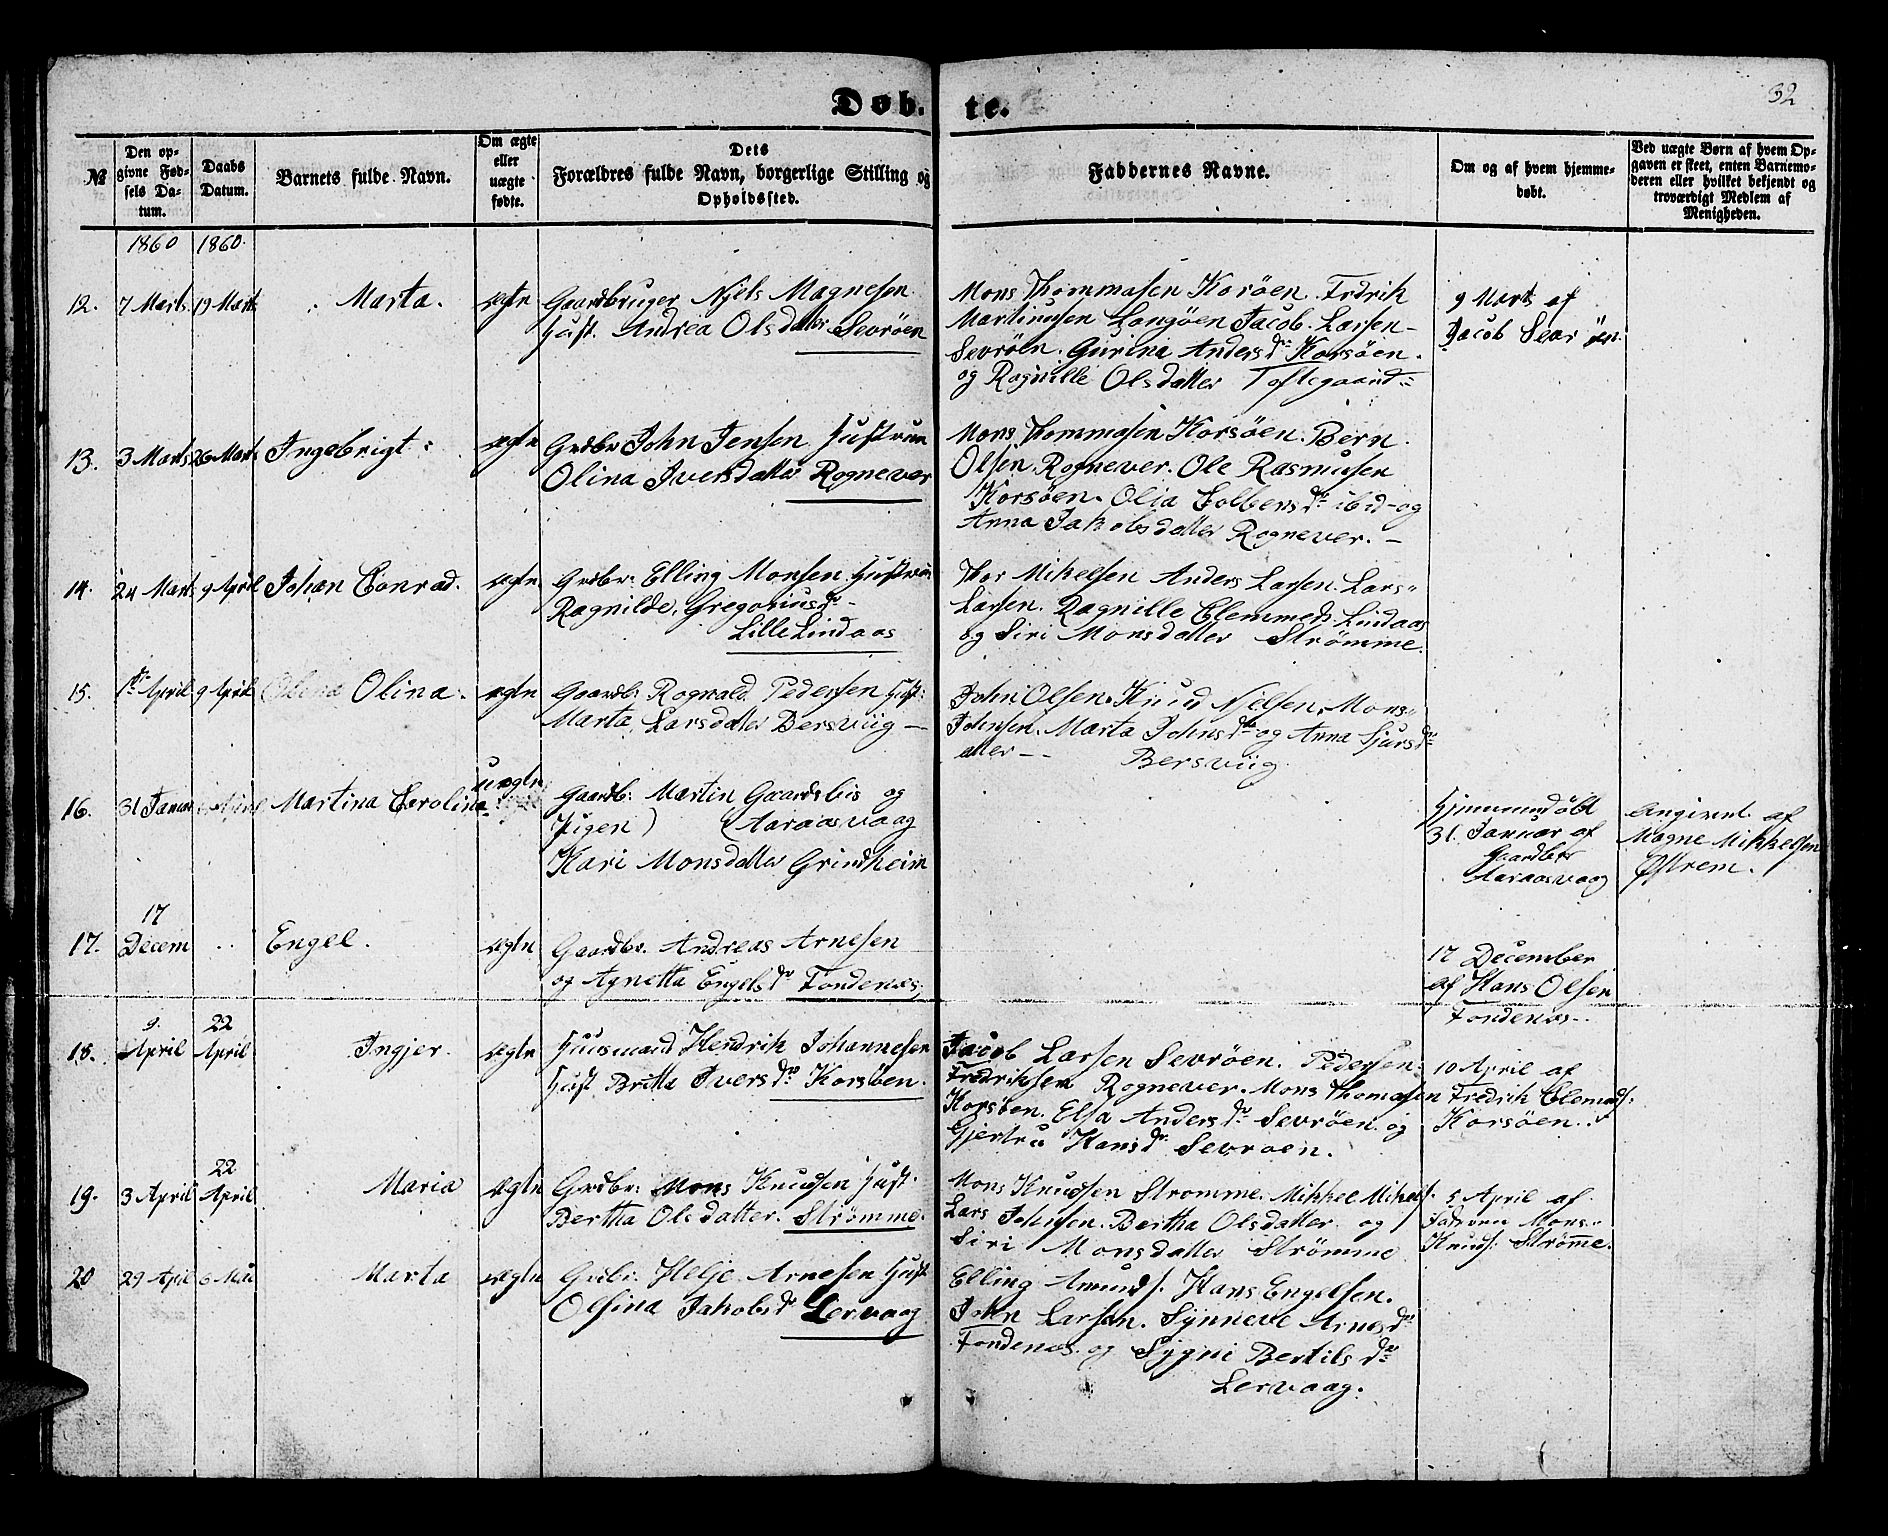 Døb. te.
32
№
Den op-
givne Fød-
sels Da-
tum.
Daabs
Datum.
Barnets fulde Navn.
Om ægte
eller
uægte
fødte.
Dets
Forældres fulde Navn, borgerlige Stilling og
Opholdssted.
Faddernes Navne.
Om og af hvem hjemme-
døbt.
Ved uægte Børn af hvem Op-
gaven er skeet, enten Barnemo-
deren eller hvilket bekjendt og
troværdigt Medlem af
Menigheden.
1860 1860.
12. 7 Marts 19 Marts Marta. ægte Gaardbruger Njels Magnesen
Hust. Andrea Olsdatter Sevrøen
Mons Thommasen Korøen. Fredrik
Martinusen Langøen Jacob Larsen
Sevrøen. Gurina Andersdr Korsøen.
og Ragnille Olsdatter Toftegaard
9 Marts af
Jacob Sevrøen.
13. 3 Marts 26 Marts Ingebrigt ægte Grdbr John Jensen Hustrue
Olina Iversdatter Rognever
Mons Thommasen Korsøen. Bern
Olsen Rognever. Ole Rasmusen
Korsøen. Olia Solbensdr ibid og
Anna Jakobsdatter Rognever. -
14. 24 Marts 9 April Johan Conrad. ægte Grdbr: Elling Monsen Hustrue
Ragnilde Gregoriusdr -
Lille Lindaas
Thor Mikelsen Anders Larsen. Lars
Larsen. Ragnille Clemmeds Lindaas
og Siri Monsdatter Strømme.
15. 1ste April 9 April Olina Olina. ægte Gaardb: Rognald Pedersen Hust:
Marta Larsdatter Bersviig -
John Olsen. Knud Njelsen. Mons
Johnsen. Marta Johnsdr og Anna Sjursdr
atter - - Bersviig
16. 31 Januar April Martina Carolina uægte Gaardb: Martin Gaardsbis og
Pigen) (Aaraasvaag
Kari Monsdatter Grindheim
Hjemmedøbt
31. Januar af
Gaardbr
Aaraasvaag
Angivet af
Magne Mikkelsen
Østrem.
17. 17
Decem Engel. ægte Gaardbr. Andreas Arnesen
og Agnetta Engelsdr Fondenæs,
17 December
af Hans Olsen
Fondenæs.
18. 9.
April 22
April Ingjer. ægte Huusmand Hendrik Johannesen
Hust Britta Iversdr Korsøen.
Jacob Larsen Sevrøen. Pedersen
Fredriksen Rognever. Mons Thomasen
Korsøen. Elsa Andersdr Sevrøen og
Gjertru Hansdr Sevrøen.
10 April af
Fredrik Clemeds:
Korsøen.
19. 3 April 22
April Maria ægte Grdbr: Mons Knudsen Hust.
Bertha Olsdatter. Strømme.
Mons Knudsen Strømme. Mikkel Mikels.
Lars Johnsen. Bertha Olsdatter og
Siri Monsdatter Strømme
5 April af
Faderen Mons
Knuds: Strømme.
20 29 April 6 Mai Marta ægte Grdbr. Helje Arnesen Hust
Olsina Jakobsdr Lervaag
Elling Amunds. Hans Engelsen.
John Larsen. Synneve Arnesdr
Fondenæs. og Sygni Bertilsdr
Lervaag.